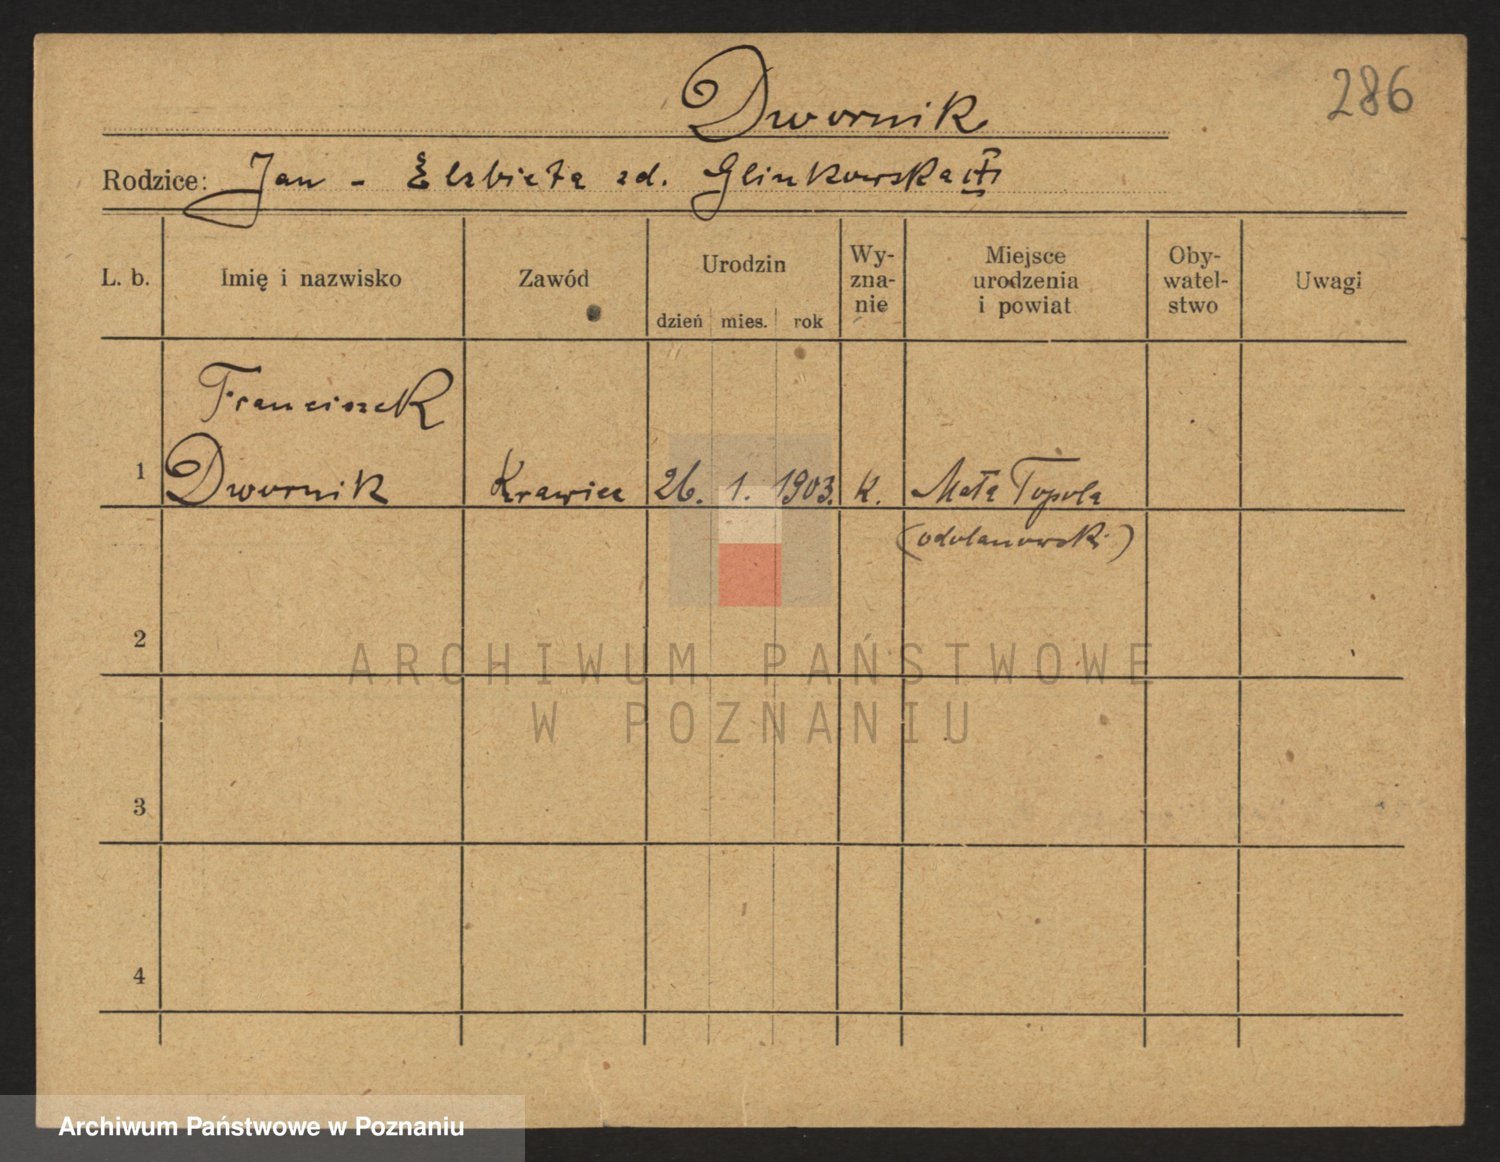 286
Dwornik
Rodzice: Jan - Elzbieta zd. Glinkowska
L. b. Imię i nazwisko Zawód Urodzin Wy- Miejsce Oby- Uwagi
zna- urodzenia watel-
nie i powiat stwo
dzień mies. rok
Franciszek
1 Dwornik Krawiec 26. 1. 1903. K. Mała Topola
(odolanowski)
2
ARCHIWUM PAŃSTWOWE
W POZNANIU
3
4
Archiwum Państwowe w Poznaniu